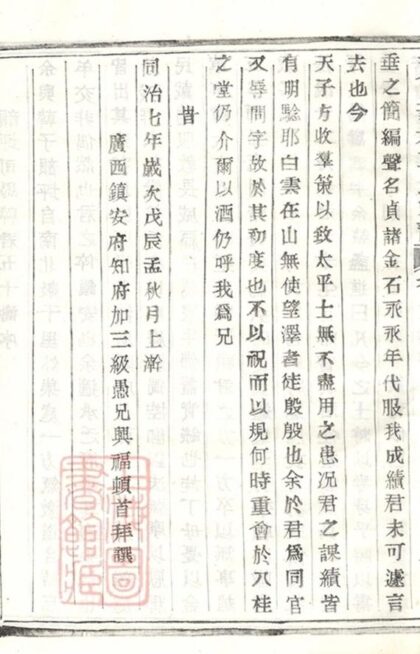 垂之簡編聲名貞諸金石永永年代服我成績君未可遽言
去也今
天子方收羣策以致太平士無不盡用之患况君之課績皆
有明驗耶白雲在山無使望澤者徒殷殷也余於君爲同官
又辱問字故於其初度也不以祝而以規何時重會於八桂
之堂仍介爾以酒仍呼我爲兄
旹
同治七年歲次戊辰孟秋月上澣
廣西鎮安府知府加三級愚兄興福頓首拜譔